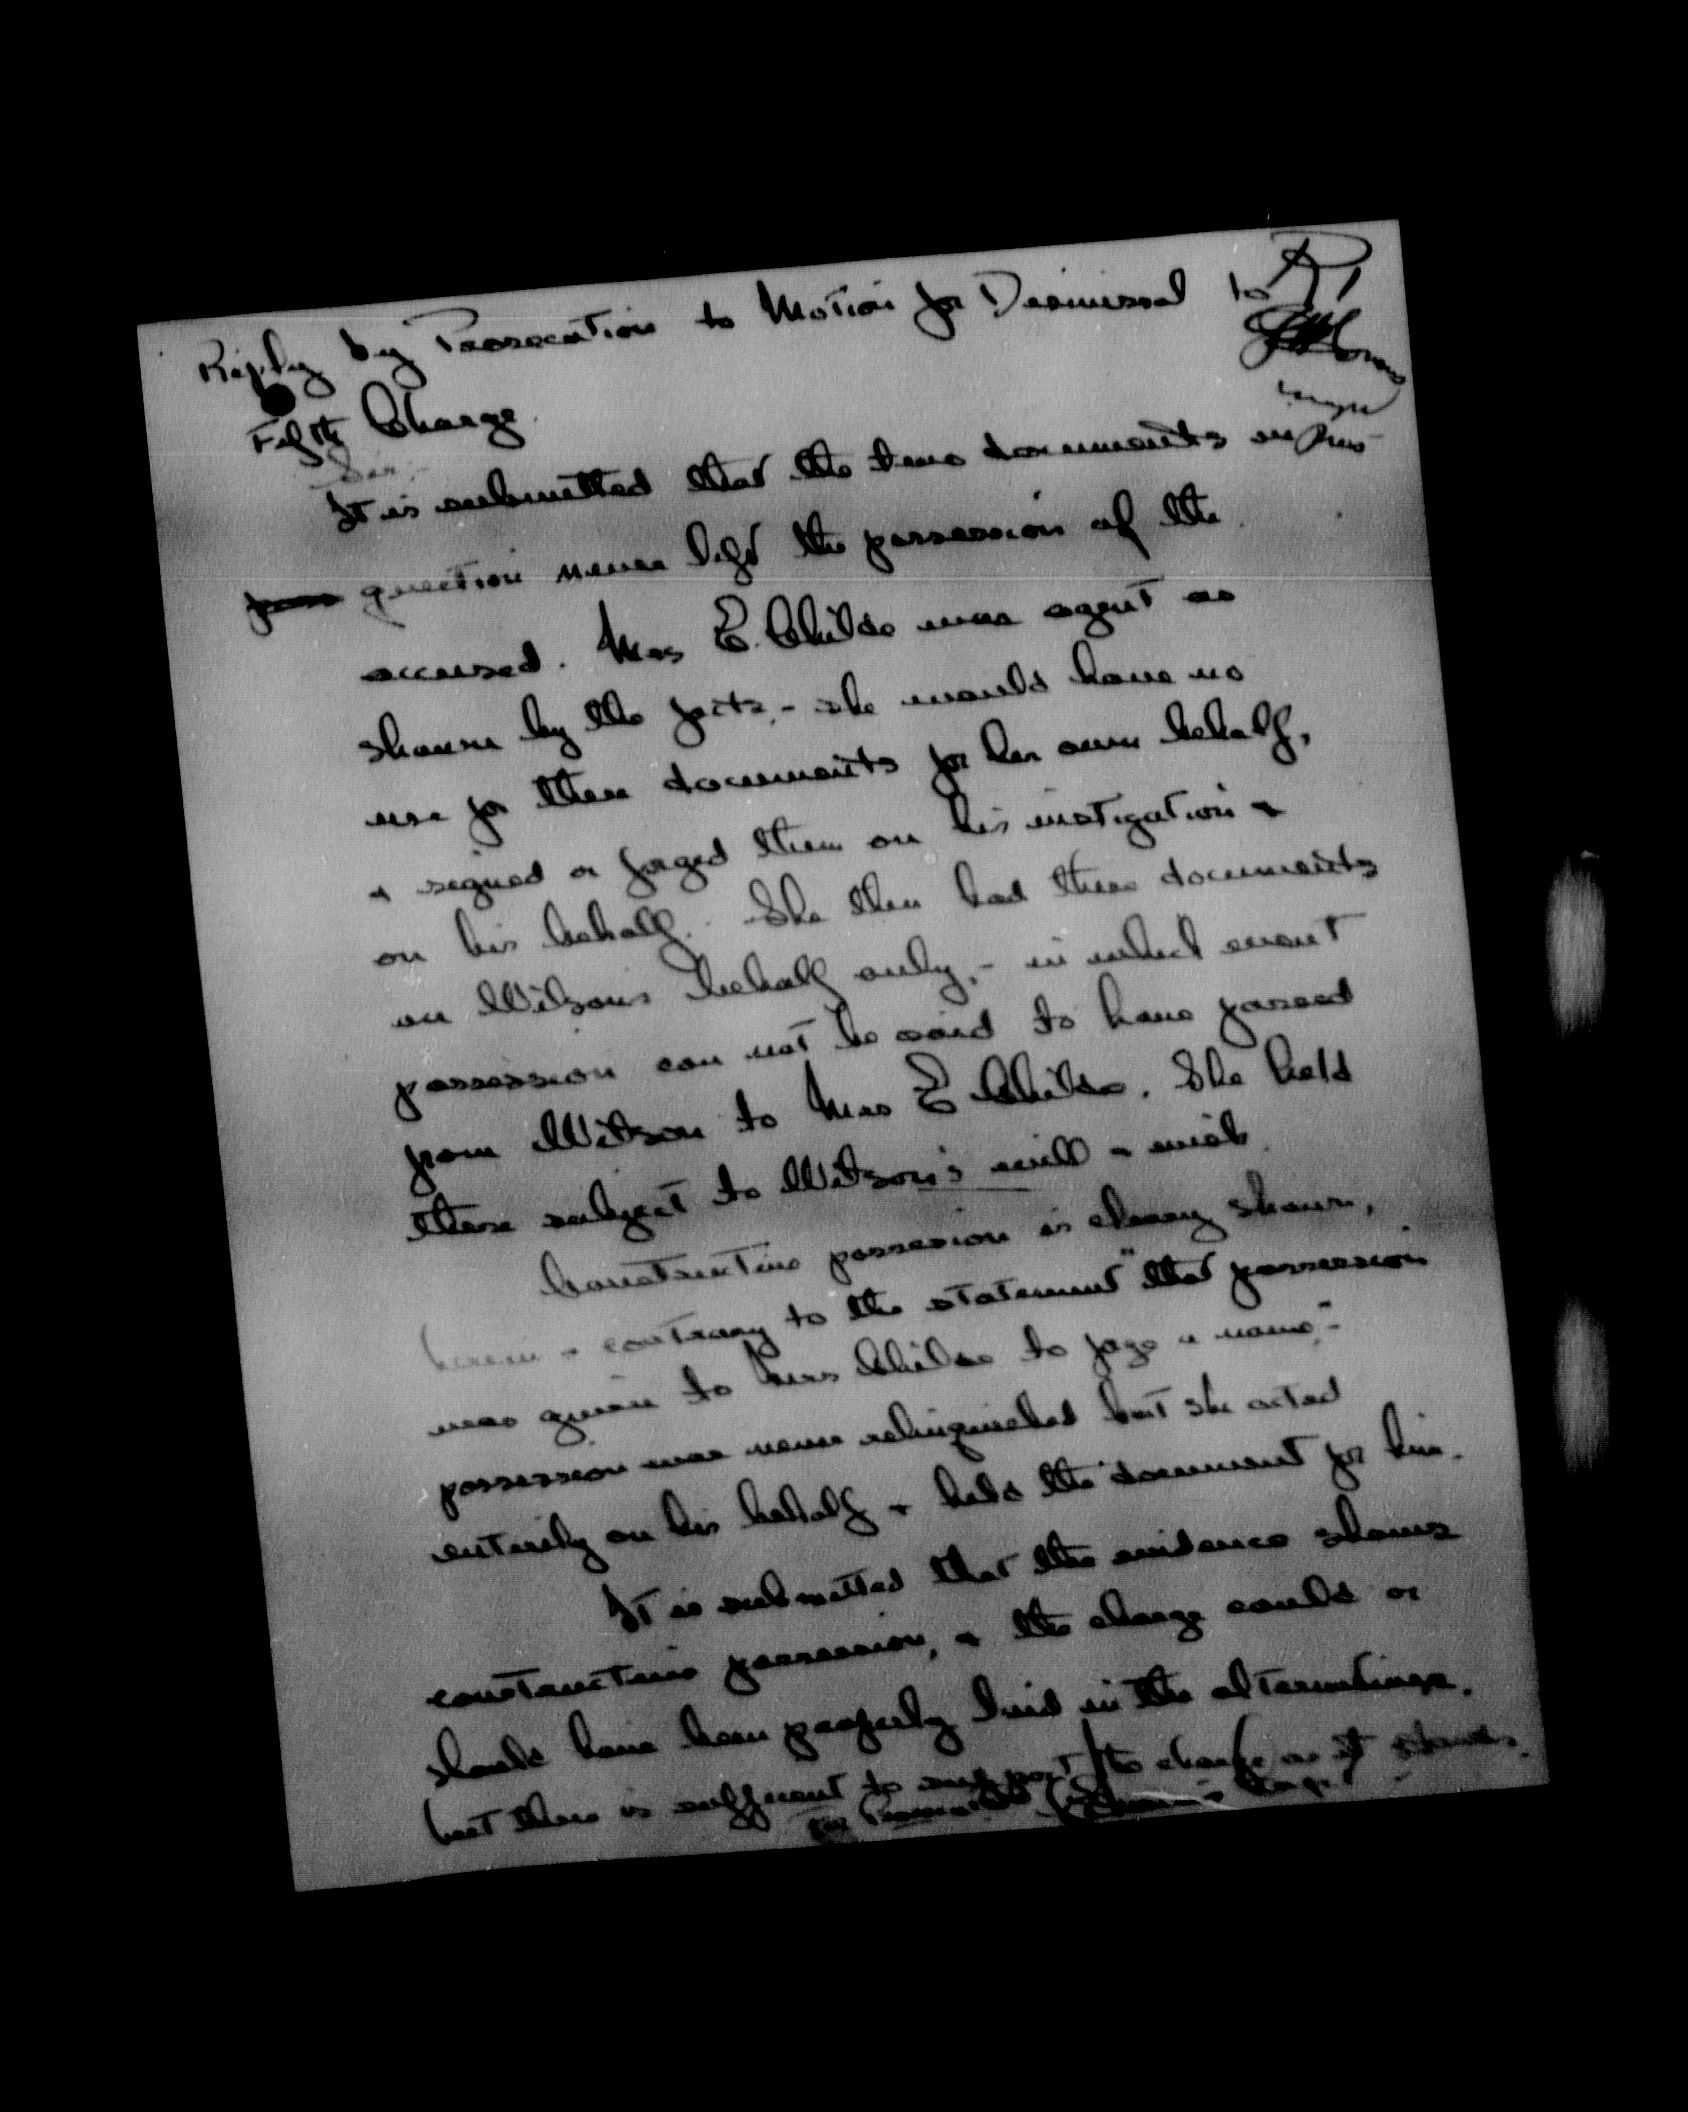 Reply by Prosecution to Motion for Dismissal to
R1
Fifth Charge.
Sir:-
It is submitted that the two documents in this
question never left the possession of the
accused. Mrs E. Childs was agent as
shown by the facts,- she would have no
use for these documents for her own behalf,
& signed or forged them on his instigation &
on his behalf. She then had these documents
on Wilsons behalf only,- in which event
possession can not be said to have passed
from Wilson to Mrs E Childs. She held
these subject to Wilson's will & wish.
Constructive possession is clearly shown,
herein & contrary to the statement "that possession
was given to Mrs Childs to forge a name,"-
possession was never relinquished but she acted
entirely on his behalf & held the document for him.
It is submitted that the evidence shows
constructive possession, & the charge could or
should have been properly laid in the alternative.
but there is sufficient to support the charge as it stands.
Capt